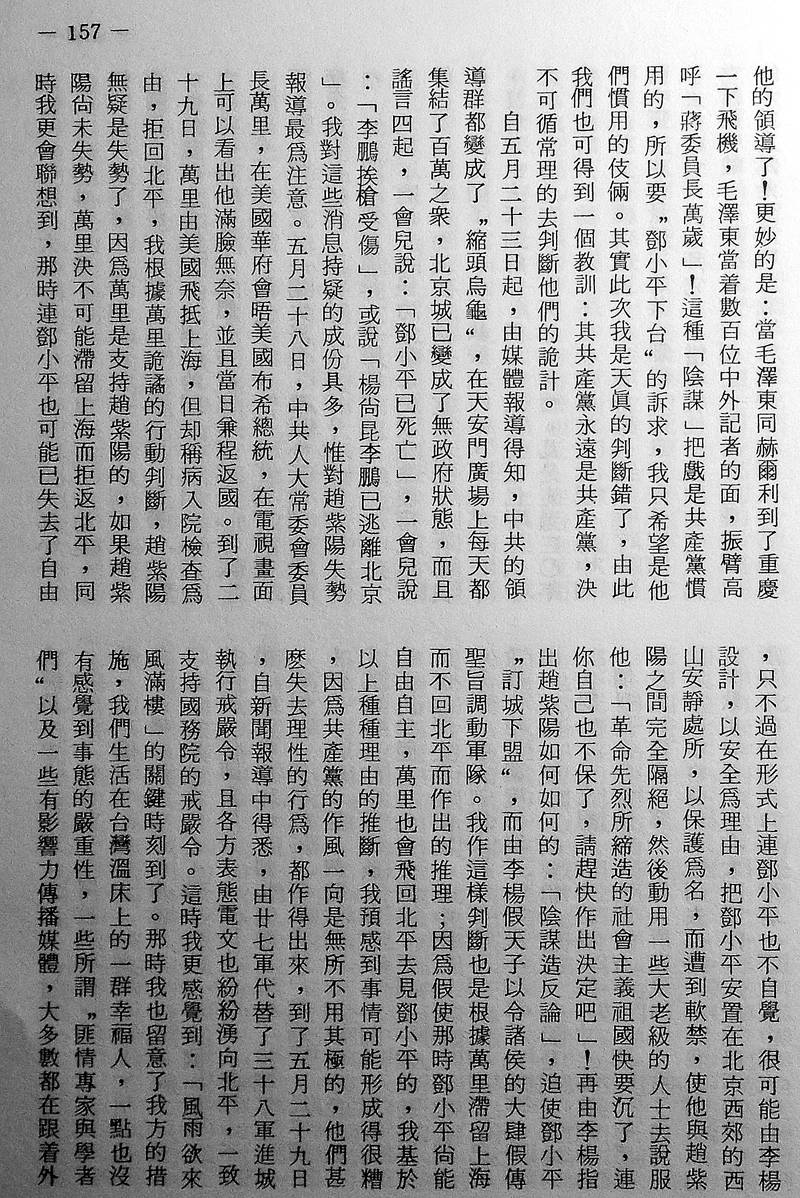 — 157 —
他的領導了！更妙的是：當毛澤東同赫爾利到了重慶
一下飛機，毛澤東當着數百位中外記者的面，振臂高
呼「蔣委員長萬歲」！這種「陰謀」把戲是共產黨慣
用的，所以要〝鄧小平下台〞的訴求，我只希望是他
們慣用的伎倆。其實此次我是天眞的判斷錯了，由此
我們也可得到一個教訓：其共產黨永遠是共產黨，決
不可循常理的去判斷他們的詭計。
自五月二十三日起，由媒體報導得知，中共的領
導群都變成了〝縮頭烏龜〞，在天安門廣場上每天都
集結了百萬之衆，北京城已變成了無政府狀態，而且
謠言四起，一會兒說：「鄧小平已死亡」，一會兒說
：「李鵬挨槍受傷」，或說「楊尙昆李鵬已逃離北京
」。我對這些消息持疑的成份具多，惟對趙紫陽失勢
報導最爲注意。五月二十八日，中共人大常委會委員
長萬里，在美國華府會晤美國布希總統，在電視畫面
上可以看出他滿臉無奈，並且當日兼程返國。到了二
十九日，萬里由美國飛抵上海，但却稱病入院檢查爲
由，拒回北平，我根據萬里詭譎的行動判斷，趙紫陽
無疑是失勢了，因爲萬里是支持趙紫陽的，如果趙紫
陽尙未失勢，萬里決不可能滯留上海而拒返北平，同
時我更會聯想到，那時連鄧小平也可能已失去了自由
，只不過在形式上連鄧小平也不自覺，很可能由李楊
設計，以安全爲理由，把鄧小平安置在北京西郊的西
山安靜處所，以保護爲名，而遭到軟禁，使他與趙紫
陽之間完全隔絕，然後動用一些大老級的人士去說服
他：「革命先烈所締造的社會主義祖國快要沉了，連
你自己也不保了，請趕快作出決定吧」！再由李楊指
出趙紫陽如何如何的：「陰謀造反論」，迫使鄧小平
〝訂城下盟〞，而由李楊假天子以令諸侯的大肆假傳
聖旨調動軍隊。我作這樣判斷也是根據萬里滯留上海
而不回北平而作出的推理；因爲假使那時鄧小平尙能
自由自主，萬里也會飛回北平去見鄧小平的，我基於
以上種種理由的推斷，我預感到事情可能形成得很糟
，因爲共產黨的作風一向是無所不用其極的，他們甚
麽失去理性的行爲，都作得出來，到了五月二十九日
，自新聞報導中得悉，由廿七軍代替了三十八軍進城
執行戒嚴令，且各方表態電文也紛紛湧向北平，一致
支持國務院的戒嚴令。這時我更感覺到：「風雨欲來
風滿樓」的關鍵時刻到了。那時我也留意了我方的措
施，我們生活在台灣溫床上的一群幸福人，一點也沒
有感覺到事態的嚴重性，一些所謂〝匪情專家與學者
們〞以及一些有影響力傳播媒體，大多數都在跟着外